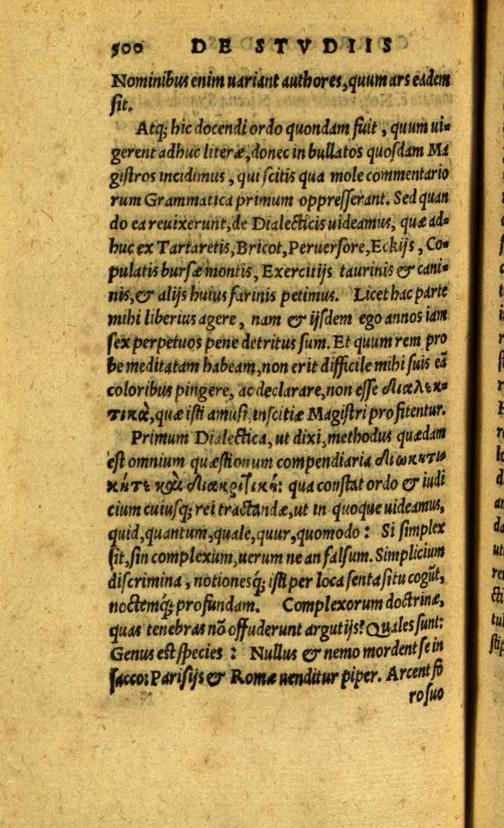 500 DE STVDIIS
Nominibus enim uariant authores, quum ars eadem
sit.
Atq; hic docendi ordo quondam fuit, quum ui-
gerent adhuc literæ, donec in bullatos quosdam Ma
gistros incidimus, qui scitis qua mole commentario
rum Grammatica primum oppresserant. Sed quan
do ea reuixerunt, de Dialecticis uideamus, quæ ad-
huc ex Tartaretis, Bricot, Peruersore, Eckijs, Co-
pulatis bursæ montis, Exercitijs taurinis & cani-
nis, & alijs huius farinis petimus. Licet hac parte
mihi liberius agere, nam & ijsdem ego annos iam
sex perpetuos pene detritus sum. Et quum rem pro
be meditatam habeam, non erit difficile mihi suis eā
coloribus pingere, ac declarare, non esse διαλεκ-
τικὰ, quæ isti amusi, inscitiæ Magistri profitentur.
Primum Dialectica, ut dixi, methodus quædam
est omnium quæstionum compendiaria διωκητι
κήτε καὶ διακριτικὴ: qua constat ordo & iudi
cium cuiusq; rei tractandæ, ut in quoque uideamus,
quid, quantum, quale, quur, quomodo: Si simplex
sit, sin complexum, uerum ne an falsum. Simplicium
discrimina, notionesq; isti per loca senta situ cogūt,
noctemq; profundam. Complexorum doctrinæ,
quas tenebras nō offuderunt argutijs? Quales sunt:
Genus est species: Nullus & nemo mordent se in
sacco: Parisijs & Romæ uenditur piper. Arcent fo
ro suo